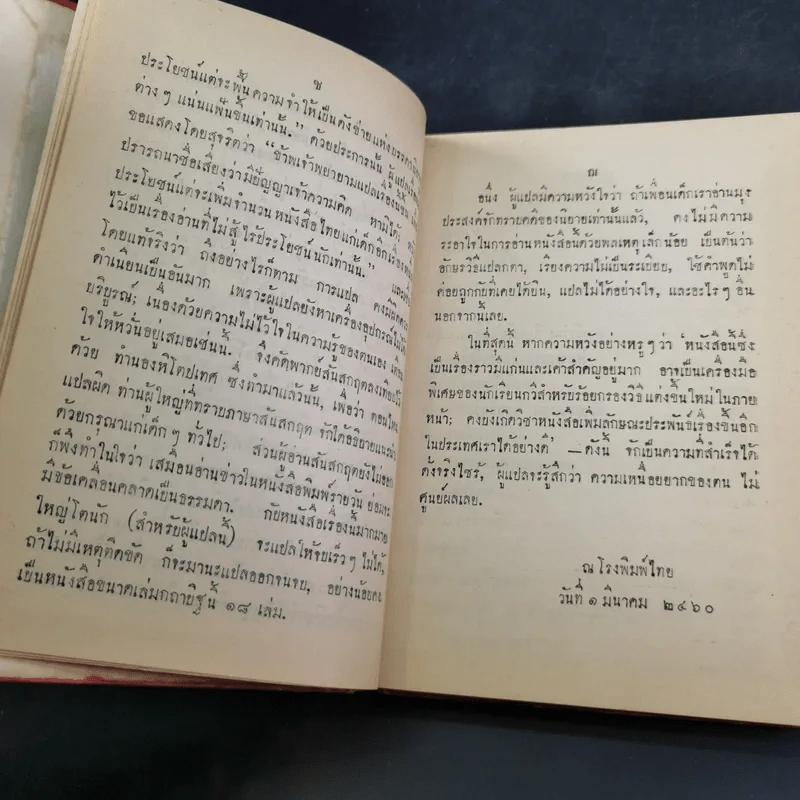 ช
ประโยชน์แต่จะฟื้นความจำให้เป็นดังข่ายแห่งบรรดา
ต่างๆ แน่นแฟ้นขึ้นเท่านั้น.” ด้วยประการนั้น ผู้แปล
ขอแสดงโดยสุจริตว่า “ข้าพเจ้าพยายามแปลเรื่องนี้ขึ้น
ปรารถนาชื่อเสียงว่ามีปัญญาเจ้าความคิด หามิได้,
ประโยชน์แต่จะเพิ่มจำนวนหนังสือไทยแก่เด็กอีกเรื่อง
ไว้เป็นเรื่องอ่านที่ไม่สู้ไร้ประโยชน์นักเท่านั้น.”
โดยแท้จริงว่า ถึงอย่างไรก็ตาม การแปล คงมีผิด
ดำเนียนเป็นอันมาก เพราะผู้แปลยังหาเครื่องอุปกรณ์
บริบูรณ์; เนื่องด้วยความไม่ไว้ใจในความรู้ของตนเอง
ใจให้หวั่นอยู่เสมอเช่นนั้น. จึงคัดพากย์สันสกฤตลงเทียบไว้
ด้วย ทำนองหิโตปเทศ ซึ่งทำมาแล้วนั้น, เพื่อว่า ตอนไหน
แปลผิด ท่านผู้ใหญ่ที่ทราบภาษาสันสกฤต จักได้อธิบายแนะนำ
ด้วยกรุณาแก่เด็กๆ ทั่วไป; ส่วนผู้อ่านสันสกฤตยังไม่ออก
ก็พึงทำในใจว่า เสมือนอ่านข่าวในหนังสือพิมพ์รายวัน ย่อมจะ
มีข้อเคลื่อนคลาดเป็นธรรมดา. กับหนังสือเรื่องนี้มากมาย
ใหญ่โตนัก (สำหรับผู้แปลนี้) จะแปลให้จบเร็วๆ ไม่ได้,
ถ้าไม่มีเหตุติดขัด ก็จะมานะแปลออกจนจบ, อย่างน้อยคง
เป็นหนังสือขนาดเล่มกถายิฐนี้ ๑๘ เล่ม.
ฌ
อนึ่ง ผู้แปลมีความหวังใจว่า ถ้าเพื่อนเด็กเราอ่านมุ่ง
ประสงค์จักทราบคดีของนิยายเท่านั้นแล้ว, คงไม่มีความ
ระอาใจในการอ่านหนังสือนี้ด้วยพลเหตุเล็กน้อย เป็นต้นว่า
อักษรวิธีแปลกตา, เรียงความไม่เป็นระเบียบ, ใช้คำพูดไม่
ค่อยถูกกับที่เคยได้ยิน, แปลไม่ได้อย่างใจ, และอะไรๆ อื่น
นอกจากนี้เลย.
ในที่สุดนี้ หากความหวังอย่างหรูๆ ว่า ‘หนังสือนี้ซึ่ง
เป็นเรื่องราวมีแก่นและเค้าสำคัญอยู่มาก อาจเป็นเครื่องมือ
พิเศษของนักเรียนกวีสำหรับร้อยกรองวิธีแต่งขึ้นใหม่ในภาย
หน้า; คงยังเกิดวิชาหนังสือเพิ่มลักษณะประพันธ์เรื่องขึ้นอีก
ในประเทศเราได้อย่างดี’ —ดังนี้ จักเป็นความที่สำเร็จได้
ดั่งจริงไซร้, ผู้แปลจะรู้สึกว่า ความเหนื่อยยากของตน ไม่
ศูนย์ผลเลย.
ณ โรงพิมพ์ไทย
วันที่ ๑ มีนาคม ๒๔๖๐